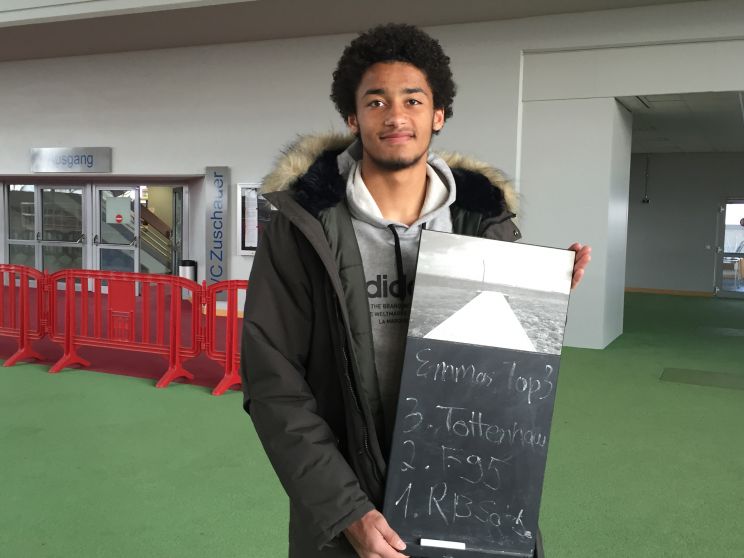 Ausgang
WC Zuschauer
adidas
THE BRAND
LA MAR
Emmas Top3
3. Tottenham
2. F95
1. RBSalz.